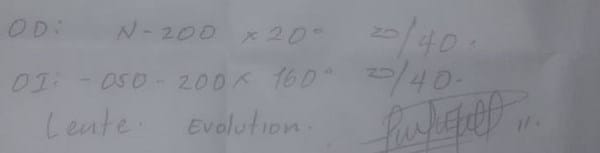 OD: N-200 x 20° 20/40.
OI: -050-200x 160° 20/40-
Lente. Evolution.